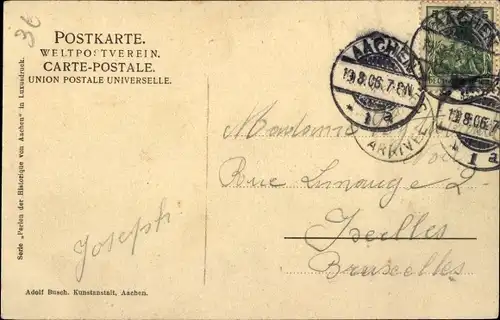 36
POSTKARTE.
WELTPOSTVEREIN.
CARTE-POSTALE.
UNION POSTALE UNIVERSELLE.
AACHEN
19.8.06.7-8N.
* 1 a
AACHEN
ARRIVÉE
8.06.7
1 a
Madame
Rue Limauge 2
Ixelles
Bruxelles
Joseph
Serie „Perlen der Historique von Aachen" in Luxusdruck.
Adolf Busch, Kunstanstalt, Aachen.